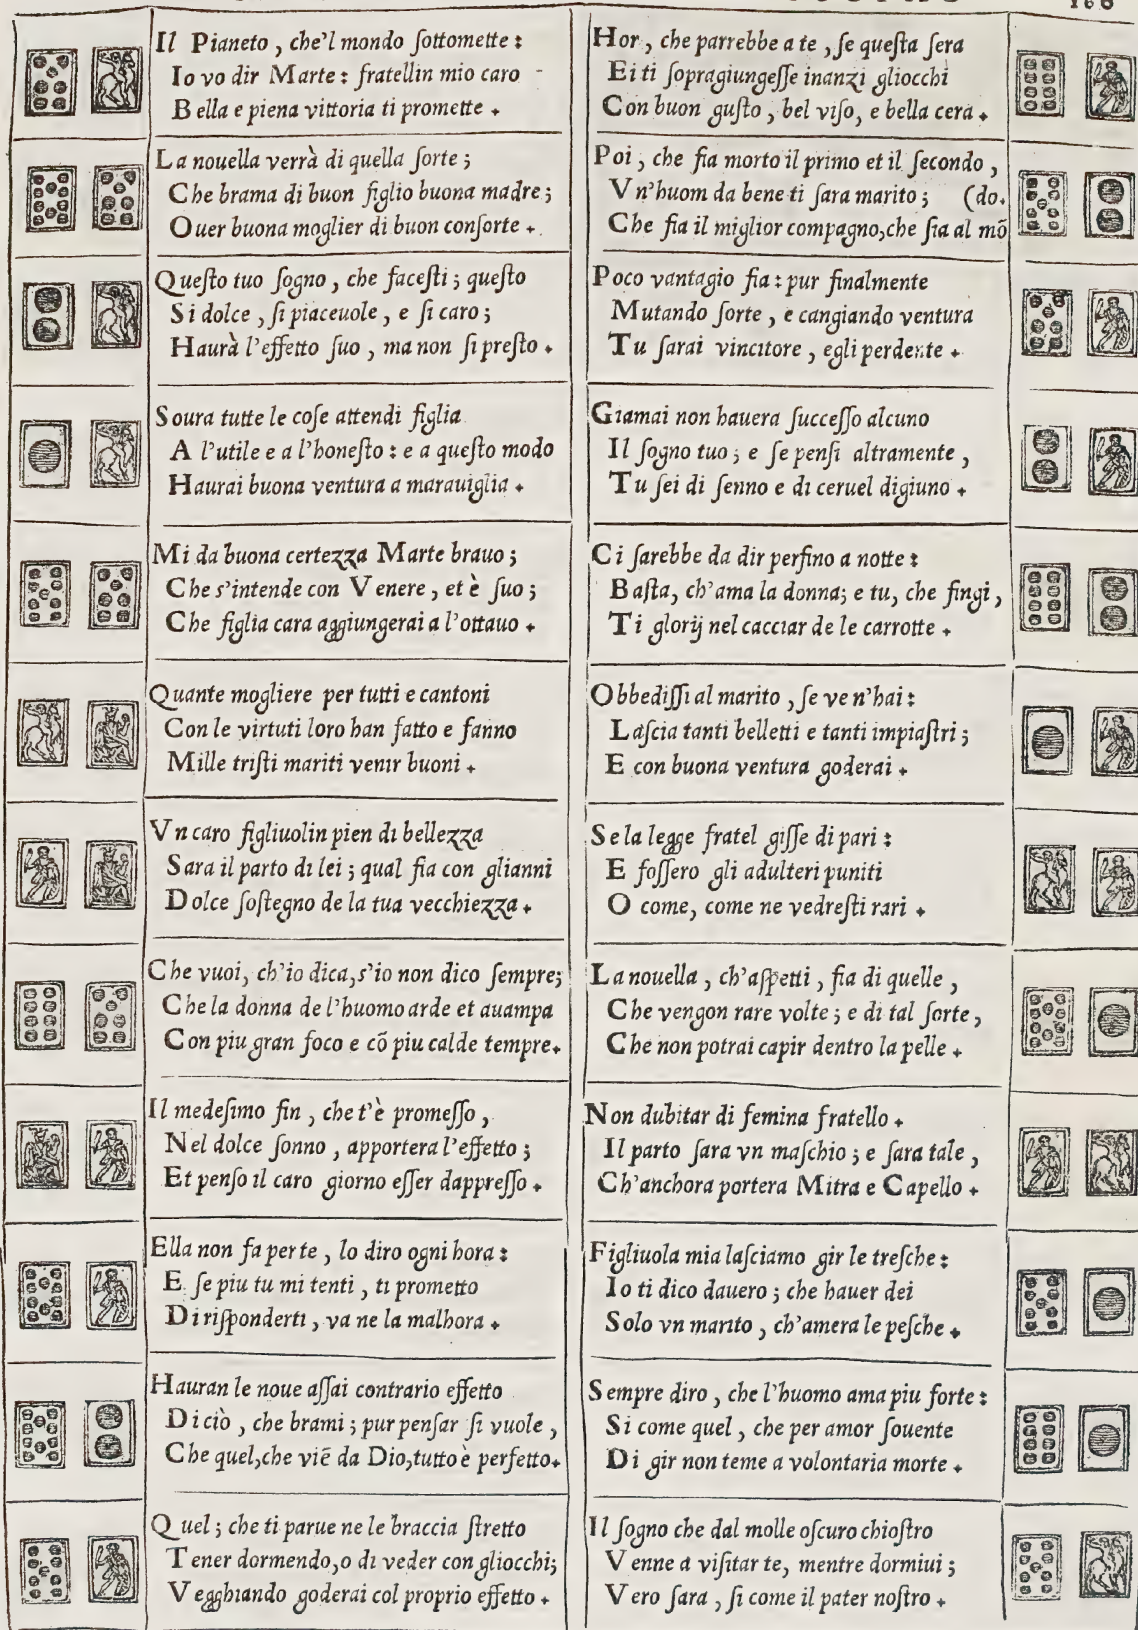 Il Pianeto, che'l mondo ſottomette:
Io vo dir Marte: fratellin mio caro
Bella e piena vittoria ti promette.
La nouella verrà di quella ſorte;
Che brama di buon figlio buona madre;
Ouer buona moglier di buon conſorte.
Queſto tuo ſogno, che faceſti; queſto
Si dolce, ſi piaceuole, e ſi caro;
Haurà l'effetto ſuo, ma non ſi preſto.
Soura tutte le coſe attendi figlia
A l'utile e a l'honeſto: e a queſto modo
Haurai buona ventura a marauiglia.
Mi da buona certezza Marte brauo;
Che s'intende con Venere, et è ſuo;
Che figlia cara aggiungerai a l'ottauo.
Quante mogliere per tutti e cantoni
Con le virtuti loro han fatto e fanno
Mille triſti mariti venir buoni.
Vn caro figliuolin pien di bellezza
Sara il parto di lei; qual fia con glianni
Dolce ſoſtegno de la tua vecchiezza.
Che vuoi, ch'io dica, s'io non dico ſempre;
Che la donna de l'huomo arde et auampa
Con piu gran foco e cõ piu calde tempre.
Il medeſimo fin, che t'è promeſſo,
Nel dolce ſonno, apportera l'effetto;
Et penſo il caro giorno eſſer dappreſſo.
Ella non fa per te, lo diro ogni hora:
E ſe piu tu mi tenti, ti prometto
Di riſponderti, va ne la malhora.
Hauran le noue aſſai contrario effetto
Di ciò, che brami; pur penſar ſi vuole,
Che quel, che viẽ da Dio, tutto è perfetto.
Quel; che ti parue ne le braccia ſtretto
Tener dormendo, o di veder con gliocchi;
Vegghiando goderai col proprio effetto.
166
Hor, che parrebbe a te, ſe queſta ſera
Ei ti ſopragiungeſſe inanzi gliocchi
Con buon guſto, bel viſo, e bella cera.
Poi, che fia morto il primo et il ſecondo,
Vn'huom da bene ti ſara marito; (do.
Che fia il miglior compagno, che ſia al mõ
Poco vantagio fia: pur finalmente
Mutando ſorte, e cangiando ventura
Tu ſarai vincitore, egli perdente.
Giamai non hauera ſucceſſo alcuno
Il ſogno tuo; e ſe penſi altramente,
Tu ſei di ſenno e di ceruel digiuno.
Ci ſarebbe da dir perfino a notte:
Baſta, ch'ama la donna; e tu, che fingi,
Ti glorij nel cacciar de le carrotte.
Obbediſſi al marito, ſe ve n'hai:
Laſcia tanti belletti e tanti impiaſtri;
E con buona ventura goderai.
Se la legge fratel giſſe di pari:
E foſſero gli adulteri puniti
O come, come ne vedreſti rari.
La nouella, ch'aſpetti, fia di quelle,
Che vengon rare volte; e di tal ſorte,
Che non potrai capir dentro la pelle.
Non dubitar di femina fratello.
Il parto ſara vn maſchio; e ſara tale,
Ch'anchora portera Mitra e Capello.
Figliuola mia laſciamo gir le treſche:
Io ti dico dauero; che hauer dei
Solo vn marito, ch'amera le peſche.
Sempre diro, che l'huomo ama piu forte:
Si come quel, che per amor ſouente
Di gir non teme a volontaria morte.
Il ſogno che dal molle oſcuro chioſtro
Venne a viſitar te, mentre dormiui;
Vero ſara, ſi come il pater noſtro.